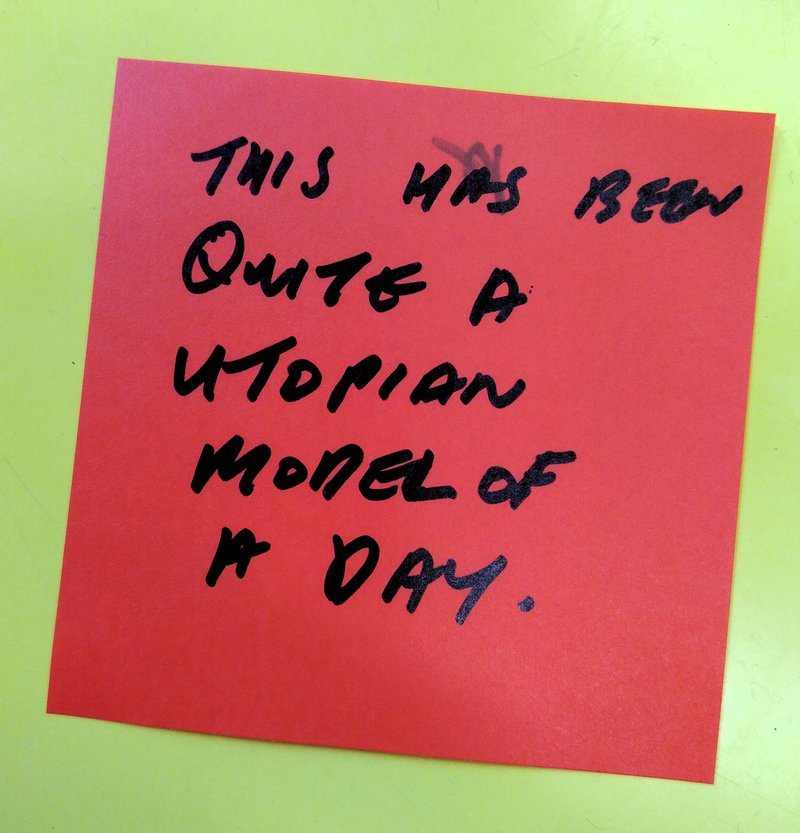 THIS HAS BEEN
QUITE A
UTOPIAN
MODEL OF
A DAY.